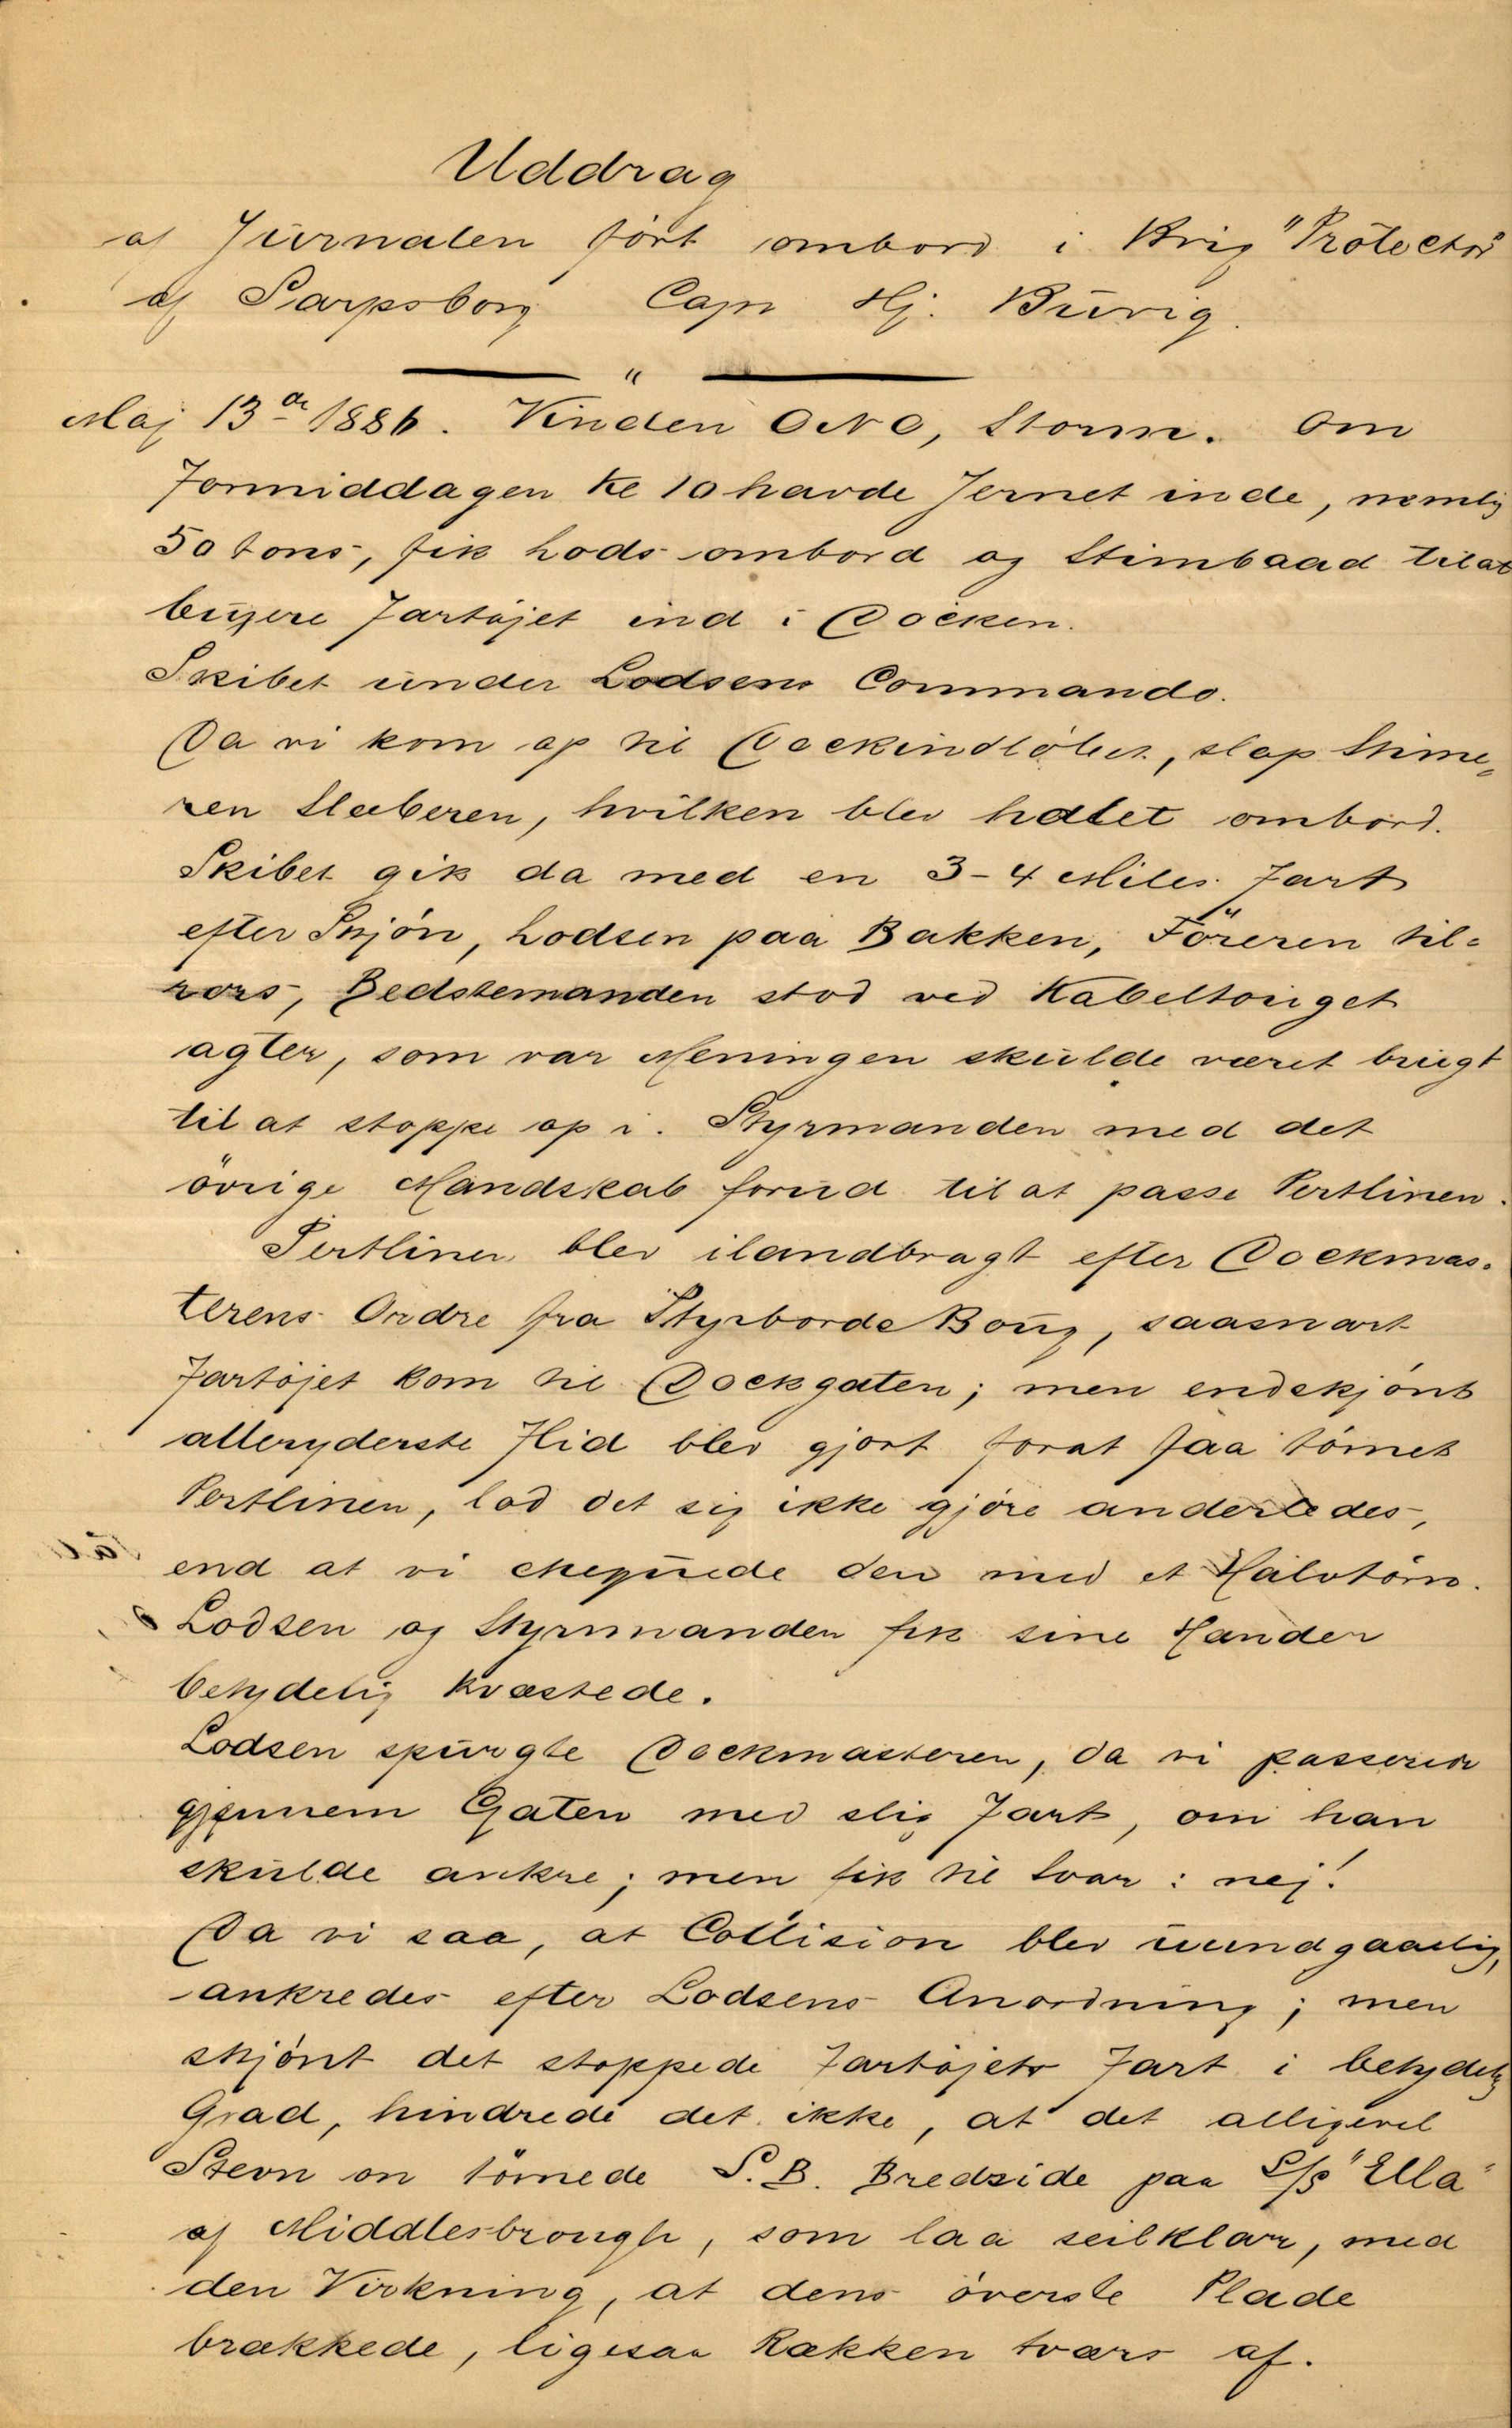 Uddrag
af Jurnalen ført ombord i Brig "Protector"
af Sarpsborg Capn Hj. Buvig.
"
Maj 13de 1886. Vinden ONO, Storm. Om
Formiddagen Kl 10 havde Jernet inde, nemlig
50 tons, fik Lods ombord og Stimbaad til at
bugsere Fartøjet ind i Docken.
Skibet under Lodsens Commando.
Da vi kom op til Dockindløbet, slap Stime„
ren Slæberen, hvilken blev halet ombord.
Skibet gik da med en 3-4 Miles Fart
efter Skjøn, Lodsen paa Bakken, Føreren til=
rors, Bedstemanden stod ved Kabeltouget
agter, som var Meningen skulde været brugt
til at stoppe op i. Styrmanden med det
øvrige Mandskab forud til at passe Pertlinen.
Pertlinen blev ilandbragt efter Dockmas=
terens Ordre fra Styrbords Boug, saasnart
Fartøjet kom til Dockgaten; men endskjønt
alleryderste Flid blev gjort forat faa tørnet
Pertlinen, lod det sig ikke gjøre anderledes,
end at vi chequede den med et Halvtørn.
Lodsen og Styrmanden fik sine Hænder
betydelig kvæstede.
Lodsen spurgte Dockmasteren, da vi passerede
gjennem Gaten med slig Fart, om han
skulde ankre; men fik til Svar: nej!
Da vi saa, at Collision blev uundgaaelig,
ankredes efter Lodsens Anordning; men
skjønt det stoppede Fartøjets Fart i betydelig
Grad, hindrede det ikke, at det alligevel
Stevn on tørnede S.B. Bredside paa S/S "Ella"
af Middlesbrough, som laa seilklar, med
den Virkning, at dens øverste Plade
brækkede, ligesaa Rækken tværs af.